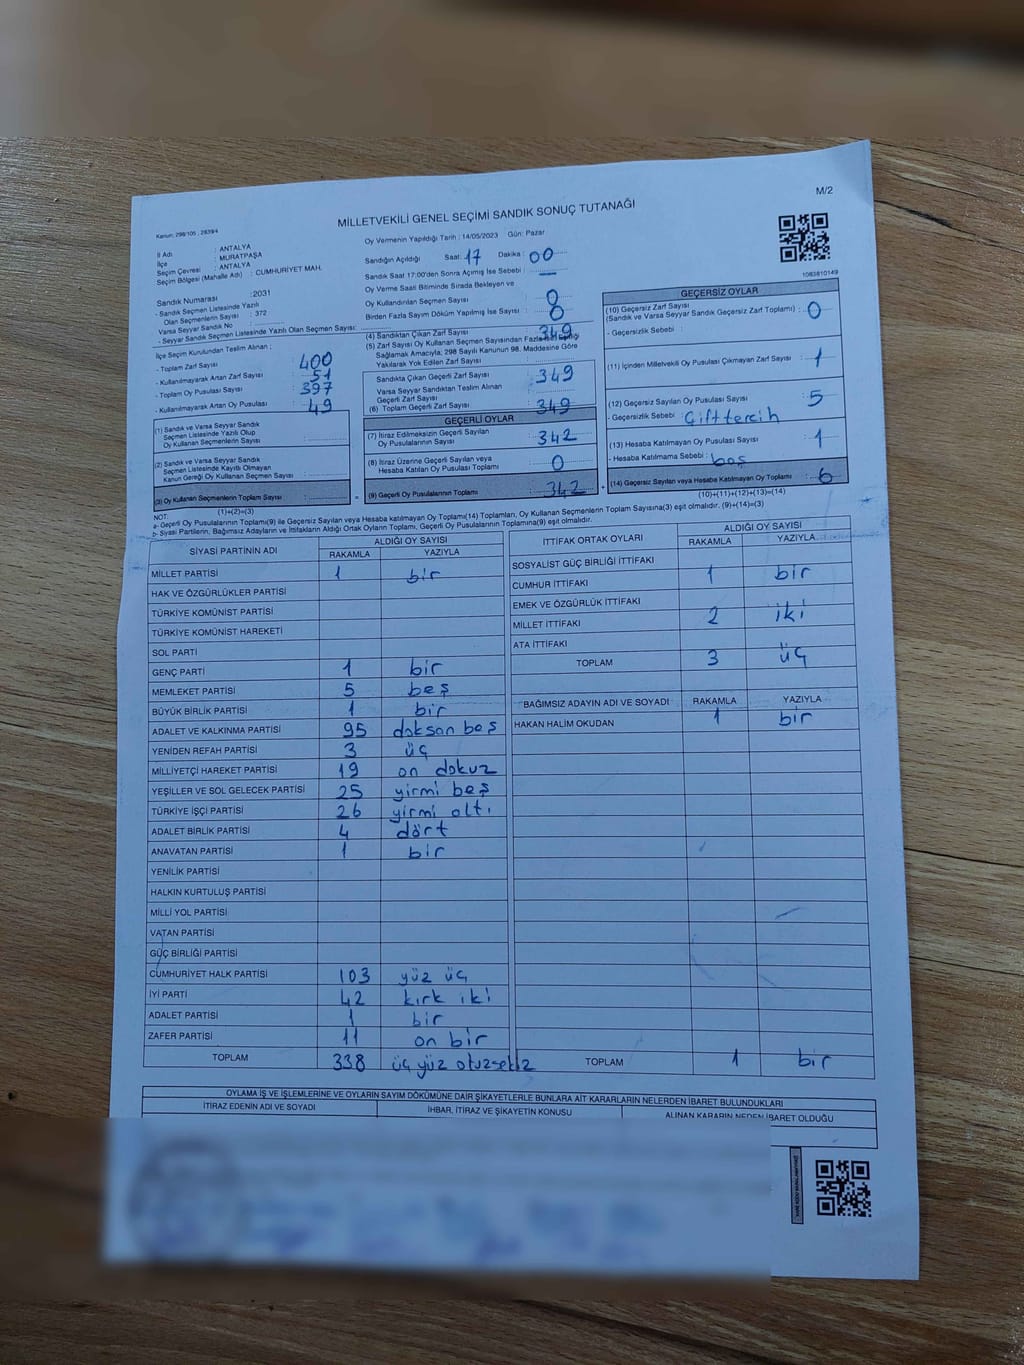 M/2
MİLLETVEKİLİ GENEL SEÇİMİ SANDIK SONUÇ TUTANAĞI
Kanun: 298/105 , 2839/4
Oy Vermenin Yapıldığı Tarih : 14/05/2023 Gün: Pazar
İl Adı : ANTALYA
İlçe : MURATPAŞA
Seçim Çevresi : ANTALYA
Seçim Bölgesi (Mahalle Adı) : CUMHURİYET MAH.
Sandık Numarası :2031
- Sandık Seçmen Listesinde Yazılı
Olan Seçmenlerin Sayısı : 372
Varsa Seyyar Sandık No :
- Seyyar Sandık Seçmen Listesinde Yazılı Olan Seçmen Sayısı:
İlçe Seçim Kurulundan Teslim Alınan :
- Toplam Zarf Sayısı 400
- Kullanılmayarak Artan Zarf Sayısı 51
- Toplam Oy Pusulası Sayısı 397
- Kullanılmayarak Artan Oy Pusulası 49
(1) Sandık ve Varsa Seyyar Sandık
Seçmen Listesinde Yazılı Olup
Oy Kullanan Seçmenlerin Sayısı
(2) Sandık ve Varsa Seyyar Sandık
Seçmen Listesinde Kayıtlı Olmayan
Kanun Gereği Oy Kullanan Seçmen Sayısı
(3) Oy Kullanan Seçmenlerin Toplam Sayısı
(1)+(2)=(3)
Sandığın Açıldığı Saat: 17 Dakika : 00
Sandık Saat 17:00'den Sonra Açılmış İse Sebebi : —
Oy Verme Saati Bitiminde Sırada Bekleyen ve
Oy Kullandırılan Seçmen Sayısı 0
Birden Fazla Sayım Döküm Yapılmış İse Sayısı : 0
(4) Sandıktan Çıkan Zarf Sayısı 349
(5) Zarf Sayısı Oy Kullanan Seçmen Sayısından Fazla İse Eşitliği
Sağlamak Amacıyla; 298 Sayılı Kanunun 98. Maddesine Göre
Yakılarak Yok Edilen Zarf Sayısı
Sandıkta Çıkan Geçerli Zarf Sayısı 349
Varsa Seyyar Sandıktan Teslim Alınan
Geçerli Zarf Sayısı
(6) Toplam Geçerli Zarf Sayısı 349
GEÇERLİ OYLAR
(7) İtiraz Edilmeksizin Geçerli Sayılan
Oy Pusulalarının Sayısı 342
(8) İtiraz Üzerine Geçerli Sayılan veya
Hesaba Katılan Oy Pusulası Toplamı 0
(9) Geçerli Oy Pusulalarının Toplamı 342
1083810149
GEÇERSİZ OYLAR
(10) Geçersiz Zarf Sayısı
(Sandık ve Varsa Seyyar Sandık Geçersiz Zarf Toplamı) : 0
- Geçersizlik Sebebi :
(11) İçinden Milletvekili Oy Pusulası Çıkmayan Zarf Sayısı 1
(12) Geçersiz Sayılan Oy Pusulası Sayısı 5
- Geçersizlik Sebebi : Çift tercih
(13) Hesaba Katılmayan Oy Pusulası Sayısı 1
- Hesaba Katılmama Sebebi : boş
(14) Geçersiz Sayılan veya Hesaba Katılmayan Oy Toplamı : 6
(10)+(11)+(12)+(13)=(14)
NOT:
a- Geçerli Oy Pusulaları Toplamı(9) ile Geçersiz Sayılan veya Hesaba katılmayan Oy Toplamı(14) Toplamları, Oy Kullanan Seçmenlerin Toplam Sayısına(3) eşit olmalıdır. (9)+(14)=(3)
b- Siyasi Partilerin, Bağımsız Adayların ve İttifakların Aldığı Ortak Oyların Toplamı, Geçerli Oy Pusulalarının Toplamına(9) eşit olmalıdır.
SİYASİ PARTİNİN ADI ALDIĞI OY SAYISI
RAKAMLA YAZIYLA
MİLLET PARTİSİ 1 bir
HAK VE ÖZGÜRLÜKLER PARTİSİ
TÜRKİYE KOMÜNİST PARTİSİ
TÜRKİYE KOMÜNİST HAREKETİ
SOL PARTİ
GENÇ PARTİ 1 bir
MEMLEKET PARTİSİ 5 beş
BÜYÜK BİRLİK PARTİSİ 1 bir
ADALET VE KALKINMA PARTİSİ 95 doksan beş
YENİDEN REFAH PARTİSİ 3 üç
MİLLİYETÇİ HAREKET PARTİSİ 19 on dokuz
YEŞİLLER VE SOL GELECEK PARTİSİ 25 yirmi beş
TÜRKİYE İŞÇİ PARTİSİ 26 yirmi altı
ADALET BİRLİK PARTİSİ 4 dört
ANAVATAN PARTİSİ 1 bir
YENİLİK PARTİSİ
HALKIN KURTULUŞ PARTİSİ
MİLLİ YOL PARTİSİ
VATAN PARTİSİ
GÜÇ BİRLİĞİ PARTİSİ
CUMHURİYET HALK PARTİSİ 103 yüz üç
İYİ PARTİ 42 kırk iki
ADALET PARTİSİ 1 bir
ZAFER PARTİSİ 11 on bir
TOPLAM 338 üç yüz otuzsekiz
İTTİFAK ORTAK OYLARI ALDIĞI OY SAYISI
RAKAMLA YAZIYLA
SOSYALİST GÜÇ BİRLİĞİ İTTİFAKI
CUMHUR İTTİFAKI 1 bir
EMEK VE ÖZGÜRLÜK İTTİFAKI
MİLLET İTTİFAKI 2 iki
ATA İTTİFAKI
TOPLAM 3 üç
BAĞIMSIZ ADAYIN ADI VE SOYADI RAKAMLA YAZIYLA
HAKAN HALİM OKUDAN 1 bir
TOPLAM 1 bir
OYLAMA İŞ VE İŞLEMLERİNE VE OYLARIN SAYIM DÖKÜMÜNE DAİR ŞİKAYETLERLE BUNLARA AİT KARARLARIN NELERDEN İBARET BULUNDUKLARI
İTİRAZ EDENİN ADI VE SOYADI İHBAR, İTİRAZ VE ŞİKAYETİN KONUSU ALINAN KARARIN NEDEN İBARET OLDUĞU